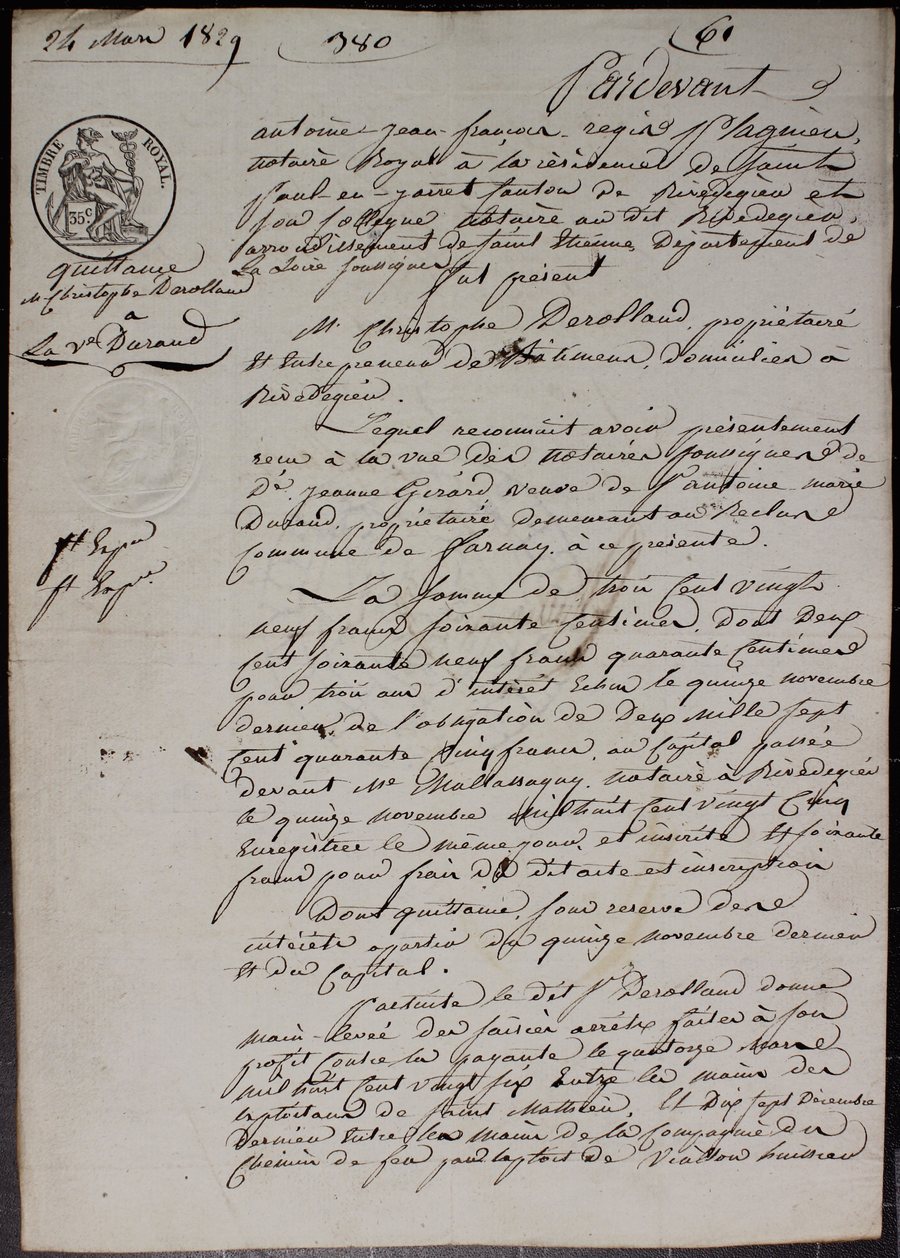 24 Mars 1829
380
61
Pardevant
TIMBRE ROYAL.
35.c
antoine-jean-françois-regis
notaire Royal à la résidence de Saint
Paul-en-jarret Canton de Rivedegier et
son Collegue Notaire au dit Rivedegier,
arrondissement de Saint Etienne, Département de
La Loire soussignés
fut présent
quittance
M. Christophe Derolland
a
La Ve Durand
Mr. Christophe Derolland, propriétaire
Et Entrepreneur de Bâtimens, domicilier à
Rivedegier.
Lequel reconnait avoir présentement
recu à la vue des Notaires soussignés de
De. Jeanne Girard, veuve de Sr antoine marie
Durand, propriétaire demeurant au Recluse
Commune de farnay, à ce présente.
ft Expon
ft Expon
La somme de trois Cent vingt
neuf francs soixante Centimes, dont Deux
Cent soixante neuf francs quarante Centimes
pour trois ans d'intérêt Echus le quinze novembre
dernier, de l'obligation de Deux Mille sept
Cent quarante Cinq francs, au Capital passée
devant Me notaire à Rivedegier
le quinze novembre mil huit Cent vingt Cinq
Enregistrée le même jour, et inscrite Et soixante
francs pour frais du dit acte et inscription
Dont quittance, sous reserve des
intérêts apartir du quinze novembre dernier
Et du Capital.
Partuite le dit Sr Derolland donne
main-levée des saisies arrêts faites à son
profit Contre la payante le quatorze Mars
mil huit Cent vingt six Entre les mains des
exploitans de Saint Mathieu, Et Dix sept Décembre
Dernier Entre les mains de la Compagnie du
Chemin de fer par exploit de huissier